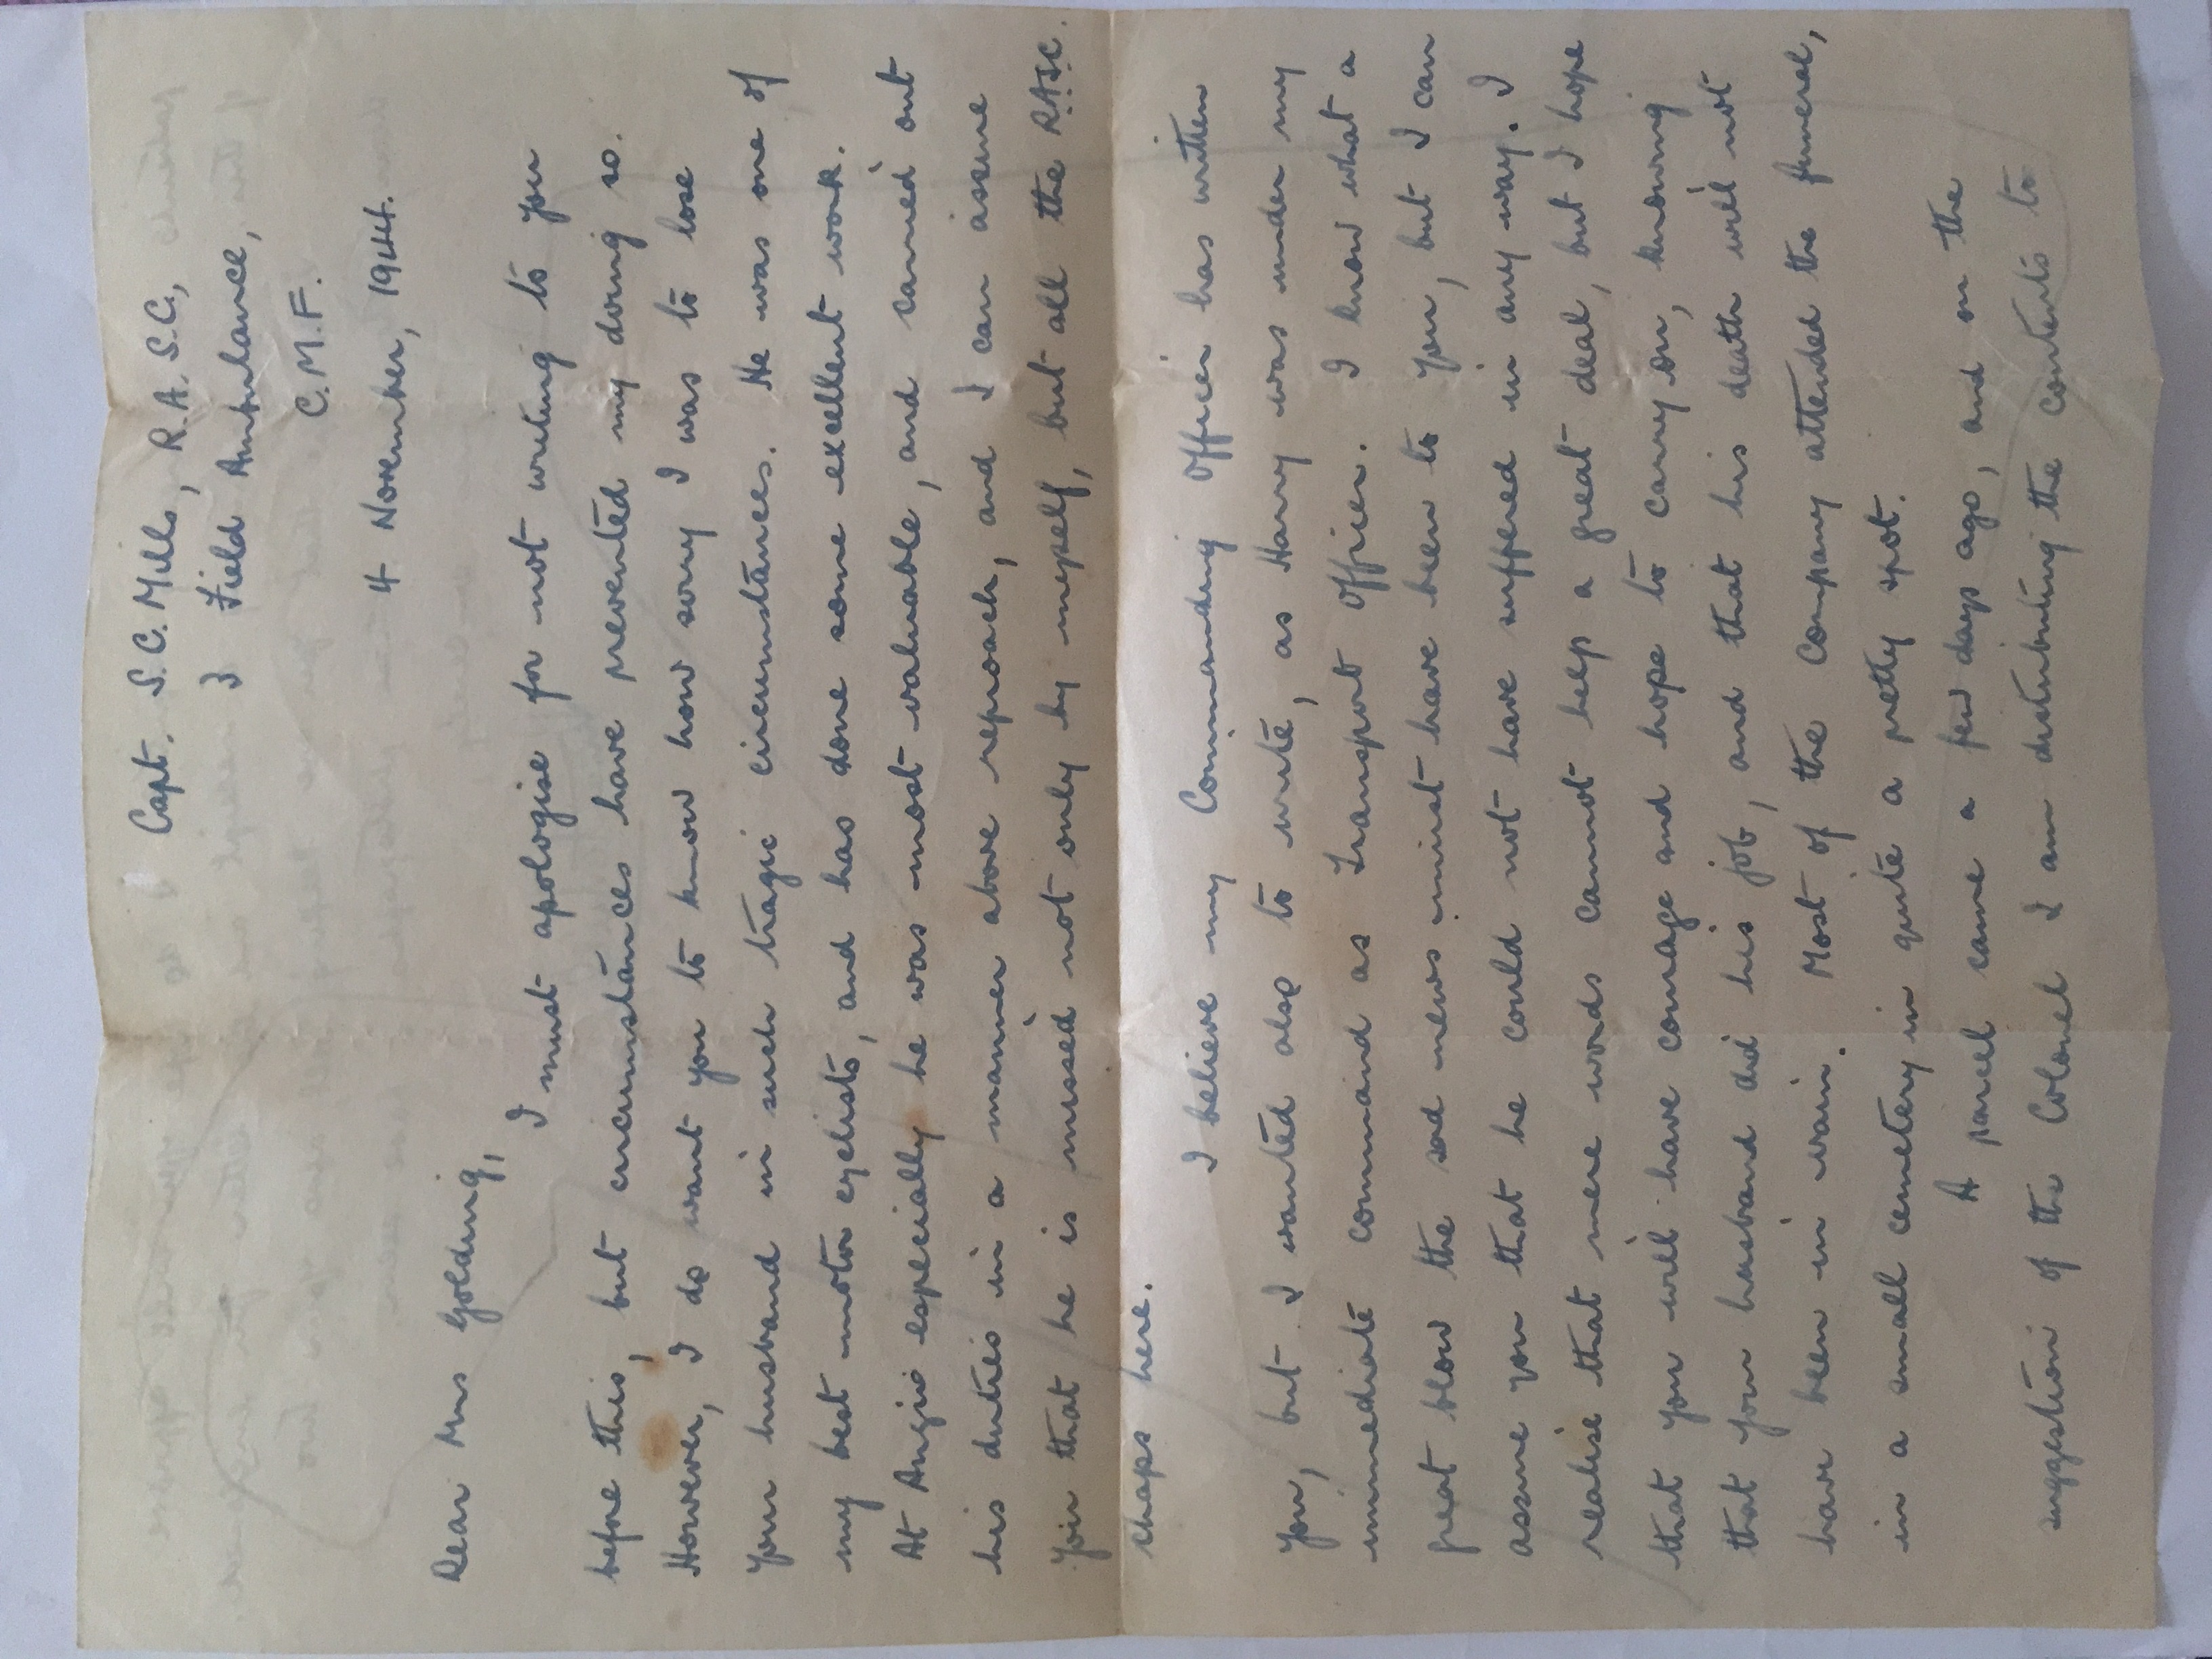 Capt. S.C. Mills, R.A.S.C.,
Field Ambulance,
C.M.F.
4 November, 1944.
Dear Mrs Golding,
I must apologise for not writing to you
before this, but circumstances have prevented my doing so.
However, I do want you to know how sorry I was to lose
your husband in such tragic circumstances. He was one of
my best motor cyclists, and has done some excellent work.
At Anzio especially he was most valuable, and carried out
his duties in a manner above reproach, and I can assure
you that he is missed not only by myself, but all the RASC.
chaps here.
I believe my Commanding Officer has written
you, but I wanted also to write, as Harry was under my
immediate command as Transport Officer. I know what a
great blow the sad news must have been to you, but I can
assure you that he could not have suffered in any way. I
realise that mere words cannot help a great deal, but I hope
that you will have courage and hope to carry on, knowing
that your husband did his job, and that his death will not
have been in vain. Most of the Company attended the funeral,
in a small cemetery in quite a pretty spot.
A parcel came a few days ago, and on the
suggestion of the Colonel I am distributing the contents to